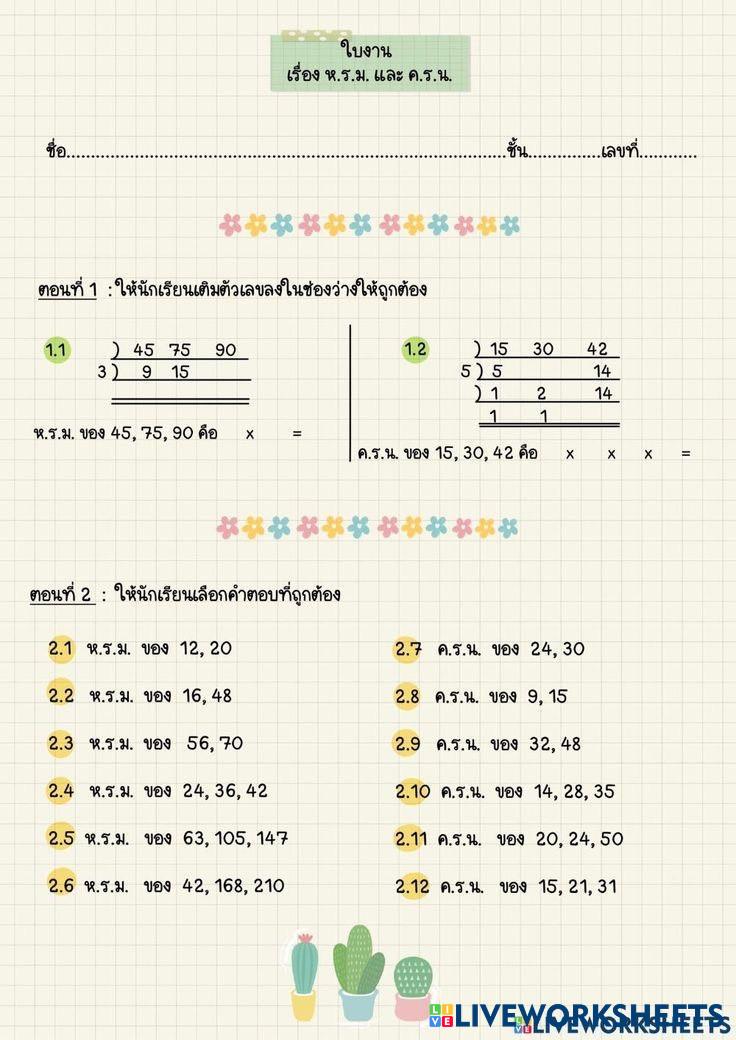 ใบงาน
เรื่อง ห.ร.ม. และ ค.ร.น.
ชื่อ..........................................................................................ชั้น...............เลขที่............
ตอนที่ 1 : ให้นักเรียนเติมตัวเลขลงในช่องว่างให้ถูกต้อง
1.1
) 45 75 90
3 ) 9 15
ห.ร.ม. ของ 45, 75, 90 คือ x =
1.2
) 15 30 42
5 ) 5 14
) 1 2 14
1 1
ค.ร.น. ของ 15, 30, 42 คือ x x x =
ตอนที่ 2 : ให้นักเรียนเลือกคำตอบที่ถูกต้อง
2.1 ห.ร.ม. ของ 12, 20
2.2 ห.ร.ม. ของ 16, 48
2.3 ห.ร.ม. ของ 56, 70
2.4 ห.ร.ม. ของ 24, 36, 42
2.5 ห.ร.ม. ของ 63, 105, 147
2.6 ห.ร.ม. ของ 42, 168, 210
2.7 ค.ร.น. ของ 24, 30
2.8 ค.ร.น. ของ 9, 15
2.9 ค.ร.น. ของ 32, 48
2.10 ค.ร.น. ของ 14, 28, 35
2.11 ค.ร.น. ของ 20, 24, 50
2.12 ค.ร.น. ของ 15, 21, 31
LIVE LIVEWORKSHEETS
LIVE LIVEWORKSHEETS